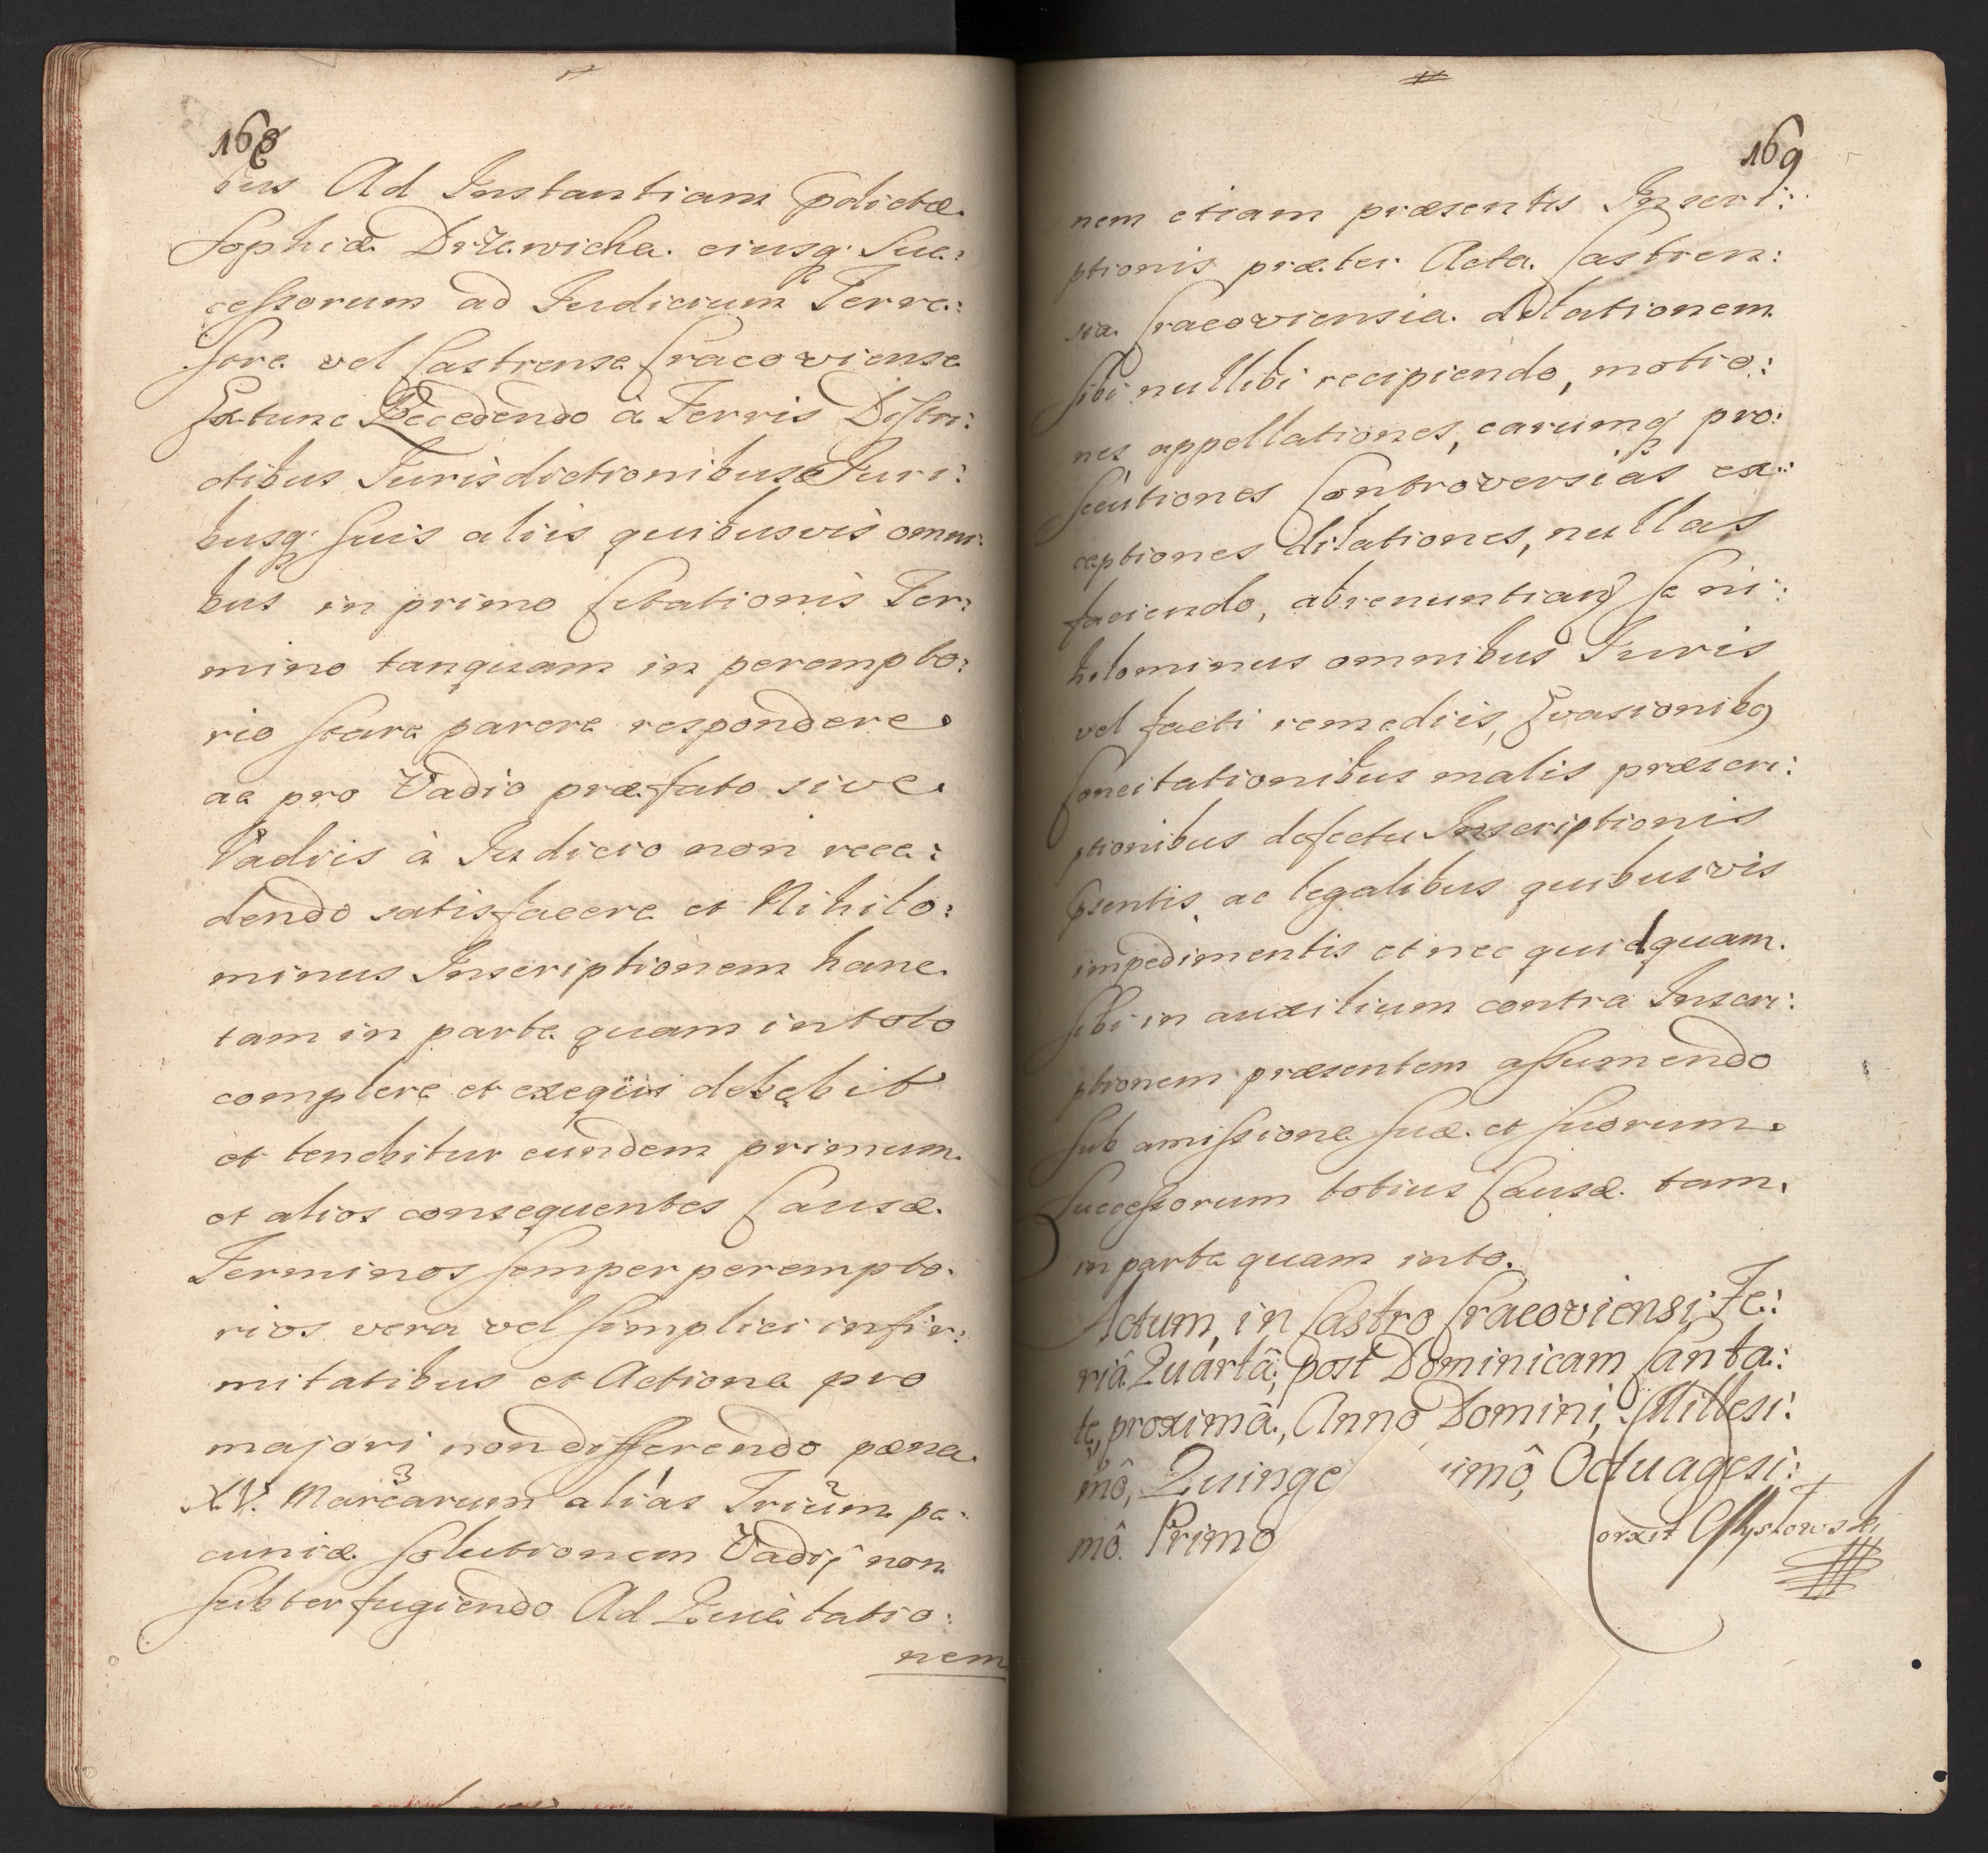 168
bus Ad Instantiam pdictæ
Sophiæ Drzewicka ejusq; Suc:
cessorum ad Judicium Terre:
stre vel Castrense Cracoviense
Extunc Recedendo à Terris Distri:
ctibus Jurisdictionibus Juri:
busq; suis aliis quibusvis omni:
bus in primo Citationis Ter:
mino tanquam in perempto:
rio stare parere respondere
ac pro Vadio præfato sive
Vadiis à Judicio non rece:
dendo satisfacere et Nihilo:
minus Inscriptionem hanc
tam in parte quam in toto
complere et exequi debebit
et tenebitur eundem primum
et alios consequentes Causæ
Terminos semper perempto:
rios vera vel simplici infir:
mitatibus et Actione pro
majori non differendo pœna
XV. Marcarum alias Trium pe:
cuniæ solutionem Vadij non
subterfugiendo Ad Quieta​tio:
nem
169
nem etiam præsentis Inscri:
ptionis præter Acta Castren:
sia Cracoviensia dilationem
sibi nullibi recipiendo, motio:
nes appellationes, earumq; pro:
secutiones Controversias ex:
ceptiones dilationes, nullas
faciendo, abrenuntiand se ni:
hilominus omnibus Juris
vel facti remediis, Evasionibq
Concitationibus malis præscri:
ptionibus defectu Inscriptionis
psentis ac legalibus quibusvis
impedimentis et nec quidquam
sibi in auxilium contra Inscri:
ptionem præsentem assumendo
sub amissione suæ et suorum
Successorum totius Causæ tam
in parte quam in to.
Actum, in Castro Cracoviensi Fe:
riâ Quartâ, post Dominicam Canta:
te, proximâ, Anno Domini, Millesi:
mô, Quinge imô, Octuagesi:
mô. Primo